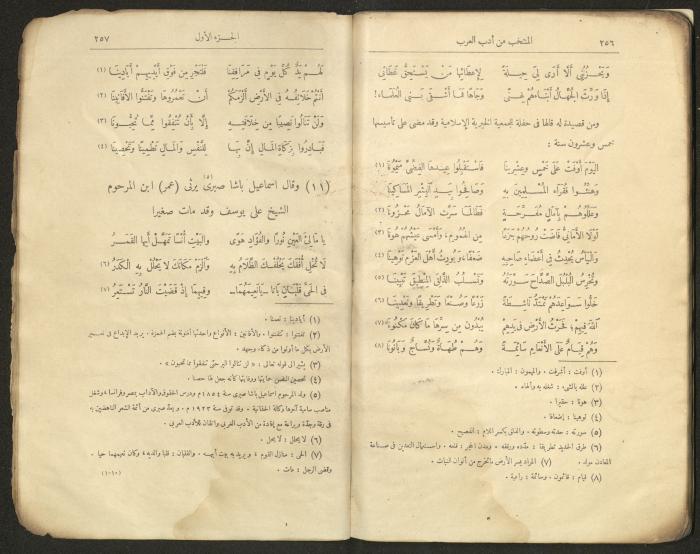 ٢٥٦
المنتخب من أدب العرب
وَيَحْزُنُنِي أَلَّا أَرَى لِيَ حِيلَةً لِإعْطَائِهَا مَنْ يَسْتَحِقُّ عَطَائِي
إذَا وَرَّثَ الْجُهَّالُ أَبْنَاءَهُمْ غِنًى وَجَاهًا فَمَا أَشْقَى بَنِي الْعُلَمَاء!
ومن قصيدة له قالها فى حفلة للجمعية الخيرية الإسلامية وقد مضى على تأسيسها
خمس وعشرون سنة :
الْيَوْمَ أَوْفَتْ عَلَى خَمْسٍ وَعِشْرِينَا فَاسْتَقْبِلُوا عِيدَهَا الْفِضِّيَّ مَيْمُونَا (١)
وَهَنِّئُوا فُقَرَاءَ الْمُسْلِمِينَ بِهِ وَصَافِحُوا بِيَدِ الْبِشْرِ الْمَسَاكِينَا
وَعَلِّلُوهُمْ بِآمَالٍ مُفَرِّحَةٍ فَطَالَمَا سَرَّتِ الْآمَالُ مَحْزُونَا (٢)
لَوْلَا الْأَمَانِيُّ فَاضَتْ رُوحُهُمْ جَزَعًا مِنَ الْهُمُومِ، وَأَمْسَى عَيْشُهُمْ هُونَا (٣)
وَالْيَأْسُ يُحْدِثُ فِي أَعْضَاءِ صَاحِبِهِ ضَعْفًا، وَيُورِثُ أَهْلَ الْعَزْمِ تَوْهِينَا (٤)
وَيُخْرِسُ الْبُلْبُلَ الصَّدَّاحَ سَوْرَتُهُ وَتَسْلُبُ الذَّلِقَ الْمِنْطِيقَ تَبْيِينَا (٥)
خَلُّوا سَوَاعِدَهُمْ مُمْتَدَّةً نَاشِطَةً زَرْعًا وَصُنْعًا وَتَطْرِيقًا وَتَعْدِينَا (٦)
اللهَ فِيهِمْ، فَحَرْثُ الْأَرْضِ فِي يَدِهِمْ يُبْدُونَ مِنْ سِرِّهَا مَا كَانَ مَكْنُونَا (٧)
وَهُمْ قِيَامٌ عَلَى الْأَنْعَامِ سَائِمَةً وَهُمْ طُهَاةٌ وَنُسَّاجٌ وَبَانُونَا (٨)
(١) أوفت : أشرفت . والميمون : المبارك .
(٢) علله بالشىء : شغله به وألهاه .
(٣) هونا : حقيرا .
(٤) توهينا : إضعافا .
(٥) سورته : حدته وسطوته . والذلق بكسر اللام : الفصيح .
(٦) طرق الحديد تطريقا : مدّده ورققه . وعدن الحجر : قلعه . واستعمال التعدين فى صناعة
المعادن مولد . (٧) المراد بسر الأرض ما تخرج من ألوان النبات .
(٨) قيام : قائمون . وسائمة : راعية .
الجزء الأول
٢٥٧
لَهُمْ يَدٌ كُلَّ يَوْمٍ فِي مَرَافِقِنَا فَلْتَجْرِ مِنْ فَوْقِ أَيْدِيهِمْ أَيَادِينَا (١)
أَنْتُمْ خَلَائِفُهُ فِي الْأَرْضِ أَلْزَمَكُمْ أَنْ تَعْمُرُوهَا وَتَفْتَنُّوا الْأَفَانِينَا (٢)
وَلَنْ تَنَالُوا نَصِيبًا مِنْ خِلَافَتِهِ إِلَّا بِأَنْ تُنْفِقُوا مِمَّا تُحِبُّونَا (٣)
فَبَادِرُوا بِزَكَاةِ الْمَالِ إِنَّ بِهَا لِلنَّفْسِ وَالْمَالِ تَطْهِيرًا وَتَحْصِينَا (٤)
(١١) وقال اسماعيل باشا صبرى(٥) يرثى (عمر) ابن المرحوم
الشيخ على يوسف وقد مات صغيرا
يا مَالِئَ الْعَيْنِ نُورًا وَالْفُؤَادِ هَوًى وَالْبَيْتِ أُنْسًا تَمَهَّلْ أَيُّهَا الْقَمَرُ
لَا تُخْلِ أُفْقَكَ يَخْلُفْكَ الظَّلَامُ بِهِ وَالْزَمْ مَكَانَكَ لَا يَحْلُلْ بِهِ الْكَدَرُ (٦)
فِي الْحَيِّ قَلْبَانِ بَاتَا يَا نَعِيمَهُمَا وَفِيهِمَا إِذْ قَضَيْتَ النَّارُ تَسْتَعِرُ (٧)
(١) أيادينا : نعمنا .
(٢) تفتنوا : تتفننوا . والأفانين : الأنواع واحدتها أفنونة بضم الهمزة . يريد الإبداع فى تعمير
الأرض بكل ما أوتوا من ذكاء وجهد .
(٣) يشير إلى قوله تعالى : « لن تنالوا البر حتى تنفقوا مما تحبون » .
(٤) تحصين النفس حمايتها ووقايتها كأنه جعل لها حصنا .
(٥) ولد المرحوم اسماعيل باشا صبرى سنة ١٨٥٤ م ودرس الحقوق والآداب بمصر وفرنسا وشغل
مناصب سامية آخرها وكالة الحقانية . وقد توفى سنة ١٩٢٣ م . ويعدّ صبرى من أئمة الشعر الناهضين به
فى رقة وجدّة وبراعة مع إفادة من الأدب الغربى وإتقان للأدب العربى .
(٦) لا يحلل : لا يحل .
(٧) الحى : منازل القوم ، ويريد به بيت أبيه . والقلبان : قلبا والديه ، وكان نعيمهما حيا .
وقضى الرجل : مات .
(١٠-١)